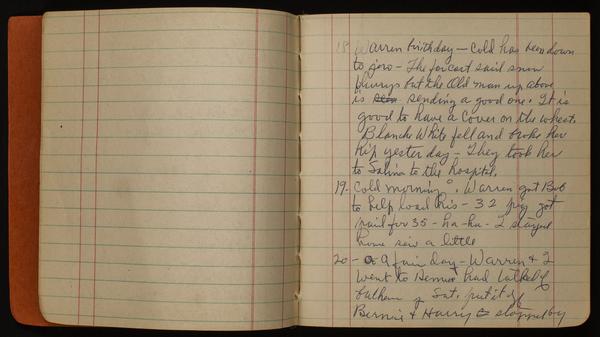 18 Warren birthday - Cold has been down
to zero - The forcast said snow
flurrys but the Old man up above
is sending a good one. It is
good to have a cover on the wheat.
Blanche White fell and broke her
Hip yesterday - They took her
to Salina to the hospital.
19 - Cold morning 0°. Warren got Bob
to help load his - 32 pig got
paid for 35 - ha-ha - I stayed
home sew a little
20 - A fair day - Warren & I
went to had
Sat. put it off
Bernie & Harry stopped by